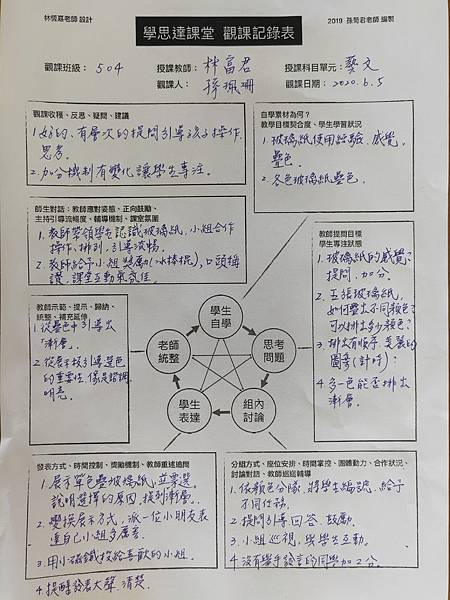 林恆嘉老師 設計
2019 孫菊君老師 編製
學思達課堂 觀課記錄表
觀課班級: 504 授課教師: 林富君 授課科目單元: 藝文
觀課人: 孫珮珊 觀課日期: 2020.6.5
觀課收穫、反思、疑問、建議
1. 好的、有層次的提問引導孩子操作、
思考。
2. 加分機制有變化讓學生專注。
自學素材為何?
教學目標契合度、學生學習狀況
1. 玻璃紙使用經驗、感覺,
疊色。
2. 各色玻璃紙疊色。
師生對話:教師應對姿態、正向鼓勵、
主持引導流暢度、輔導機制、課堂氛圍
1. 教師帶領學生認識玻璃紙,小組合作
操作、排列,引導流暢。
2. 教師給予小組獎勵(冰棒棍),口頭稱
讚,課室互動氣氛佳。
教師提問目標
學生專注狀態
1. 玻璃紙的感覺?
提問、加分。
2. 五張玻璃紙,
如何疊出不同顏色?
可以排出多少顏色?
3. 排出有順序、美麗的
圖案(計時)。
4. 多一色能否排出
漸層。
教師示範、提示、歸納、
統整、補充延伸
1. 從疊色中引導出
「漸層」。
2. 從展示板引導選色
的重要性,像是諧調、
明亮。
學生
自學
思考
問題
組內
討論
學生
表達
老師
統整
發表方式、時間控制、獎勵機制、教師重述追問
1. 展示單色疊玻璃紙,並票選,
說明選擇的原因,提到漸層。
2. 變換展示方式,派一位小朋友表
達自己小組多厲害。
3. 用小磁鐵投給喜歡的小組。
4. 提醒發表大聲、清楚。
分組方式、座位安排、時間掌控、團體動力、合作狀況、
討論對話、教師巡迴輔導
1. 依顏色分隊,將學生編號,給予
不同任務。
2. 提問引導回答、鼓勵。
3. 小組巡視,與學生互動。
4. 沒有舉手發言的同學加2分。